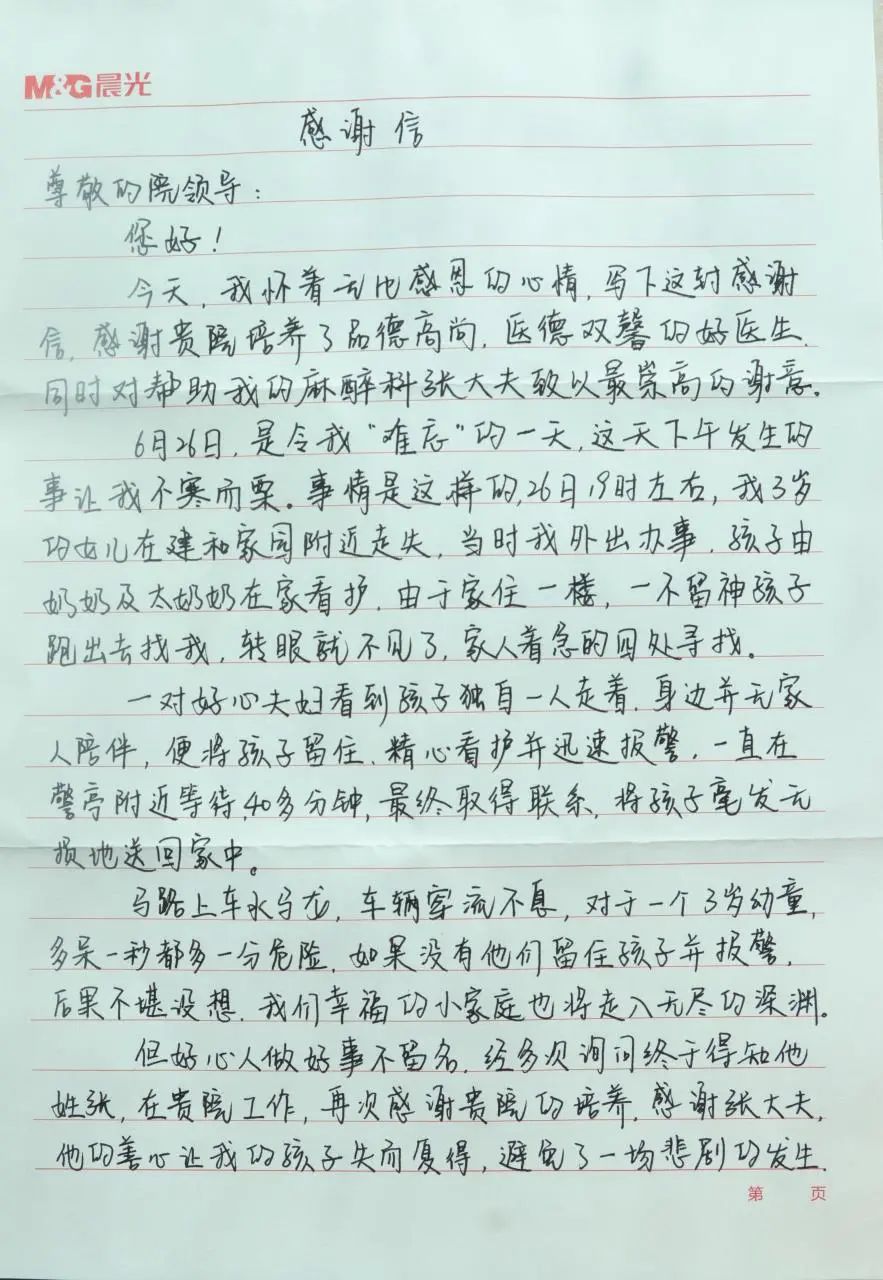 M&G晨光
感谢信
尊敬的院领导：
您好！
今天，我怀着无比感恩的心情，写下这封感谢
信，感谢贵院培养了品德高尚，医德双馨的好医生，
同时对帮助我的麻醉科张大夫致以最崇高的谢意。
6月26日，是令我“难忘”的一天，这天下午发生的
事让我不寒而栗。事情是这样的，26日19时左右，我3岁
的女儿在建和家园附近走失，当时我外出办事，孩子由
奶奶及太奶奶在家看护，由于家住一楼，一不留神孩子
跑出去找我，转眼就不见了，家人着急的四处寻找。
一对好心夫妇看到孩子独自一人走着，身边并无家
人陪伴，便将孩子留住，精心看护并迅速报警，一直在
警亭附近等待，40多分钟，最终取得联系，将孩子毫发无
损地送回家中。
马路上车水马龙，车辆客流不息，对于一个3岁幼童，
多呆一秒都多一分危险，如果没有他们留住孩子并报警，
后果不堪设想，我们幸福的小家庭也将走入无尽的深渊。
但好心人做好事不留名，经多次询问终于得知他
姓张，在贵院工作，再次感谢贵院的培养，感谢张大夫，
他的善心让我的孩子失而复得，避免了一场悲剧的发生，
第 页